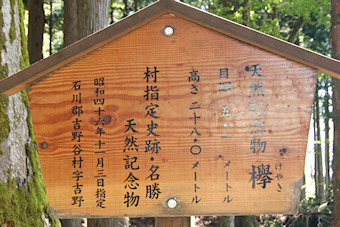 天然記念物 欅
けやき
目 五 メートル
高さ 二十八・〇メートル
村指定史跡・名勝
天然記念物
昭和四十六年十一月三日指定
石川郡吉野谷村字吉野